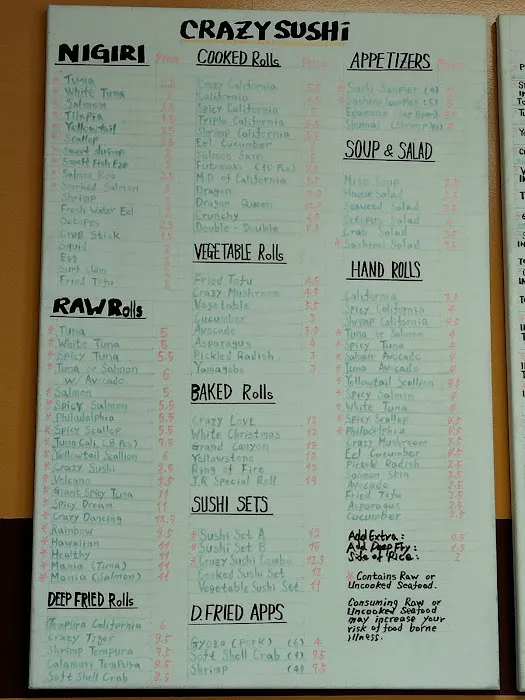 CRAZY SUSHI
NIGIRI Price
* Tuna
* White Tuna
* Salmon
* Tilapia
* Yellowtail
* Scallop
* Sweet shrimp
* Smelt Fish Egg
* Salmon Roe
* Smoked Salmon
Shrimp
Fresh Water Eel
Octopus
Crab Stick
Squid
Egg
Surf clam
Fried Tofu
RAW Rolls
* Tuna 5
* White Tuna 5
* Spicy Tuna 5.5
* Tuna or Salmon
W/ Avocado 6
* Salmon 5
* Spicy Salmon 5.5
* Philadelphia 5.5
* Spicy Scallop 5.5
* Tuna Cali. 7.5
* Yellowtail Scallion 6
* Crazy Sushi 8.5
* Volcano 9.5
* Giant Spicy Tuna 11
* Spicy Dream 11
* Crazy Dancing 13.5
* Rainbow 9.5
* Hawaiian 11
* Healthy 11
* Mania (Tuna) 11
* Mania (Salmon) 11
DEEP FRIED Rolls
Tempura California 6
Crazy Tiger 9.5
Shrimp Tempura 7.5
Calamari Tempura 8.5
Soft Shell Crab 8.5
COOKED Rolls Price
Crazy California 5.5
California 4.5
Spicy California 5
Triple California 5.5
Shrimp California 5.5
Eel Cucumber
Salmon Skin
Futomaki
M.D of California
Dragon
Dragon Queen
Crunchy
Double - Double
VEGETABLE Rolls
Fried Tofu 4.5
Crazy Mushroom 4.5
Vegetable 5.5
Cucumber 3
Avocado
Asparagus 4
Pickled Radish 3
Yamagobo 3
BAKED Rolls
Crazy Love 12
White Christmas 12
Grand Canyon 13
Yellowstone 13
Ring of Fire 13
J.R Special Roll 14
SUSHI SETS
* Sushi Set A 12
* Sushi Set B 15
* Crazy Sushi Combo 12.5
Cooked Sushi Set 12
Vegetable Sushi Set 11
D.FRIED APPS
Gyoza (pork) (6) 4
Soft Shell Crab (1) 7.5
Shrimp (4) 7.5
APPETIZERS Price
* Sushi Sampler
* Sashimi Sampler (5)
Edamame (Soy Bean)
Shumai (Shrimp)
SOUP & SALAD
Miso Soup
House Salad
Seaweed Salad
Octopus Salad
Crab Salad
* Sashimi Salad
HAND ROLLS
California 3.5
Spicy California 4
Shrimp California 4.5
* Tuna or Salmon 4
* Spicy Tuna 4
* Salmon Avocado 4
* Tuna Avocado 4
* Yellowtail Scallion
* Spicy Salmon 4
* White Tuna 4
* Spicy Scallop
* Philadelphia
Crazy Mushroom 3.5
Eel Cucumber 4.5
Pickled Radish 2.5
Salmon Skin 3.5
Avocado 2.5
Fried Tofu 2.5
Asparagus 2.5
Cucumber 2.5
Add Extra: 0.5
Add Deep Fry: 1.5
Side of Rice: 2
* Contains Raw or
Uncooked Seafood.
Consuming Raw or
Uncooked Seafood
may increase your
risk of food borne
illness.